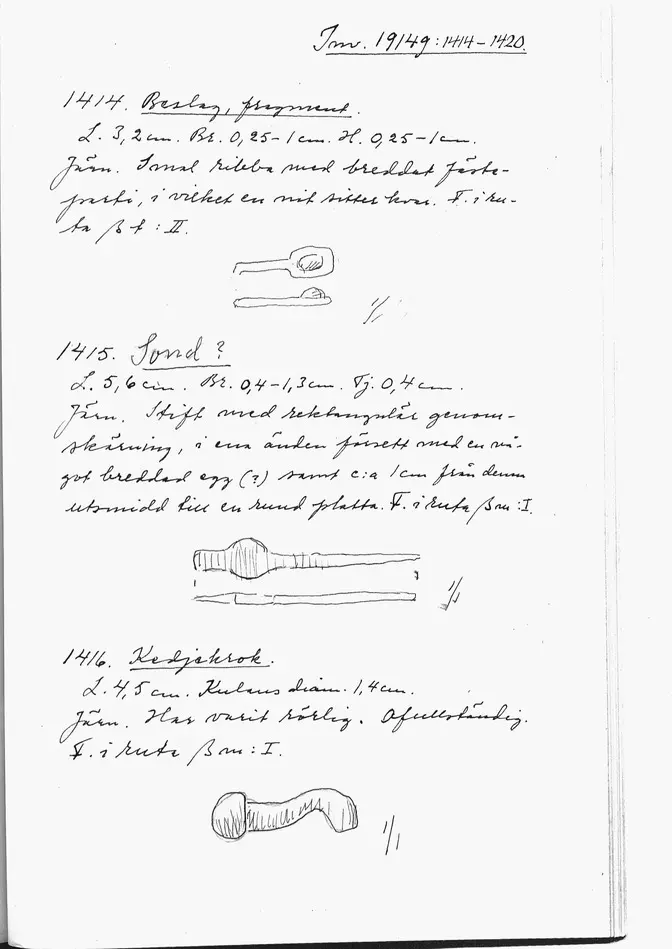 Inv. 19149:1414-1420.
1414. Beslag, fragment.
L. 3,2 cm. Br. 0,25-1 cm. H. 0,25-1 cm.
Järn. Smal ribba med breddat fäste-
parti, i vilket en nit sitter kvar. F. i ru-
ta β t : II.
1/1
1415. Sond?
L. 5,6 cm. Br. 0,4-1,3 cm. Tj. 0,4 cm.
Järn. Stift med rektangulär genom-
skärning, i ena änden försett med en nå-
got breddad egg (?) samt c:a 1 cm från denna
utsmidd till en rund platta. F. i ruta β m : I.
1/1
1416. Kedjekrok.
L. 4,5 cm. Kulans diam. 1,4 cm.
Järn. Har varit rörlig. Ofullständig.
F. i ruta β m : I.
1/1